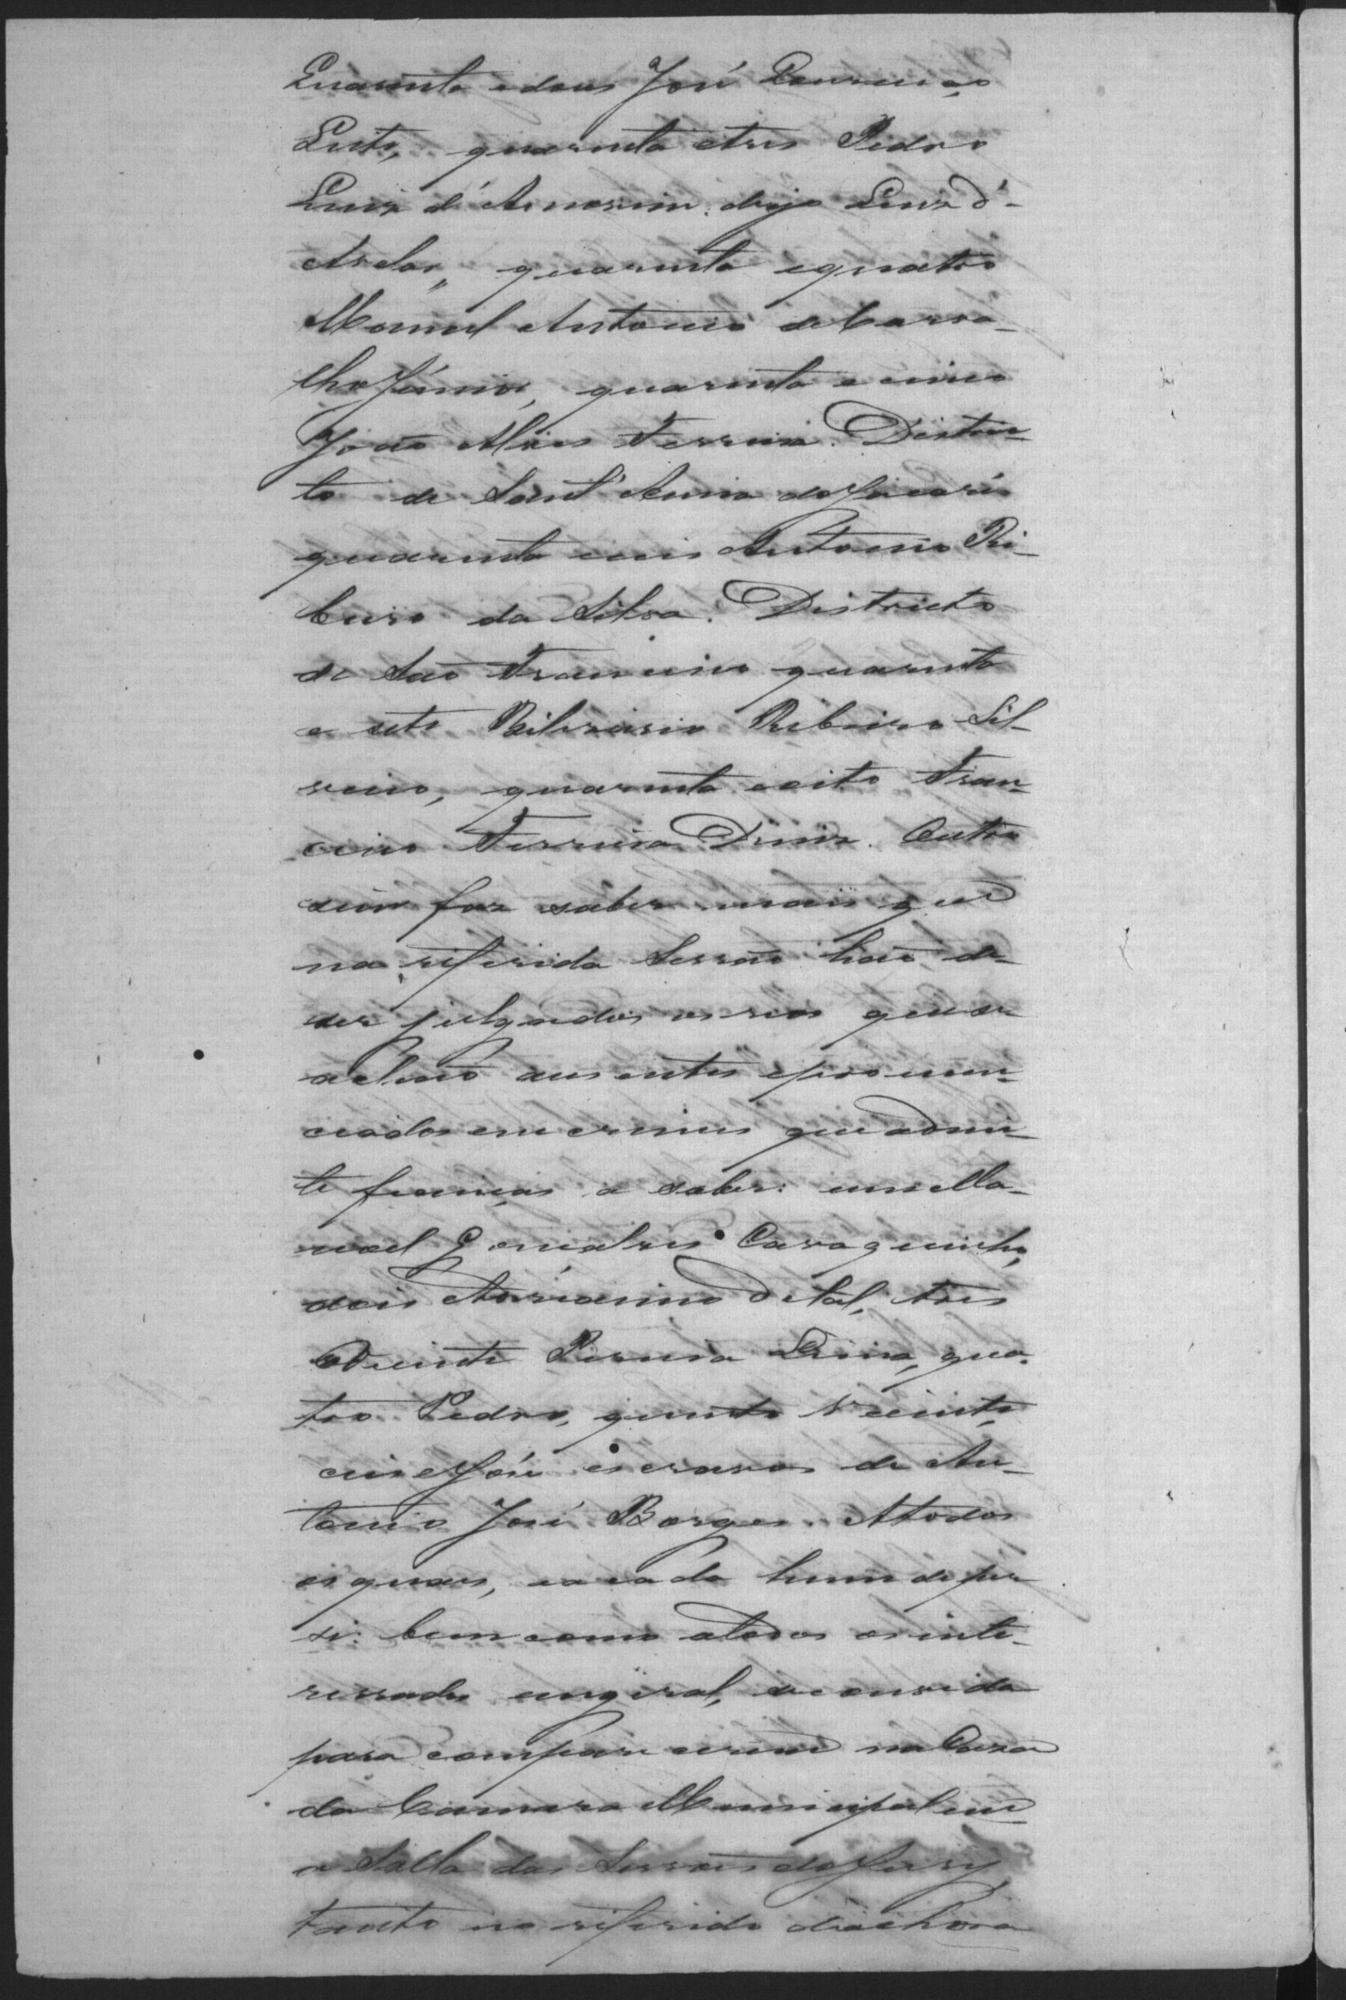 Quarenta e dous José Lourenço
Leite, quarenta e tres Pedro
Luiz d'Amorim digo Luiz d'-
quarenta e quatro
Manoel Antonio de Carva-
lho Júnior, quarenta e cinco
João Alves Ferreira. Distric-
to de Sant'Anna do Jacaré
quarenta e seis Antonio Ri-
beiro da Silva. Districto
de São Francisco quarenta
e sete Belizario Ribeiro Sil-
verio, quarenta e oito Fran-
cisco Ferreira Diniz. Outro
sim faz saber mais que
na referida Sessão hão de
ser julgados os reos que se
achão ausentes e pronun-
ciados em crimes que admit-
te fianças a saber: um Ma-
noel Gonçalves
dois de tal, tres
Vicente Pereira Lima, qua-
tro Pedro, quinto Vicente,
seis e José escravos de An-
tonio José Borges. A todos
os quaes, e a cada hum de per
si bem como a todos os inte-
ressados em geral, se convida
para comparecerem na Casa
da Camara Municipal em
a Salla das Sessões do Jury
tanto no referido dia e hora